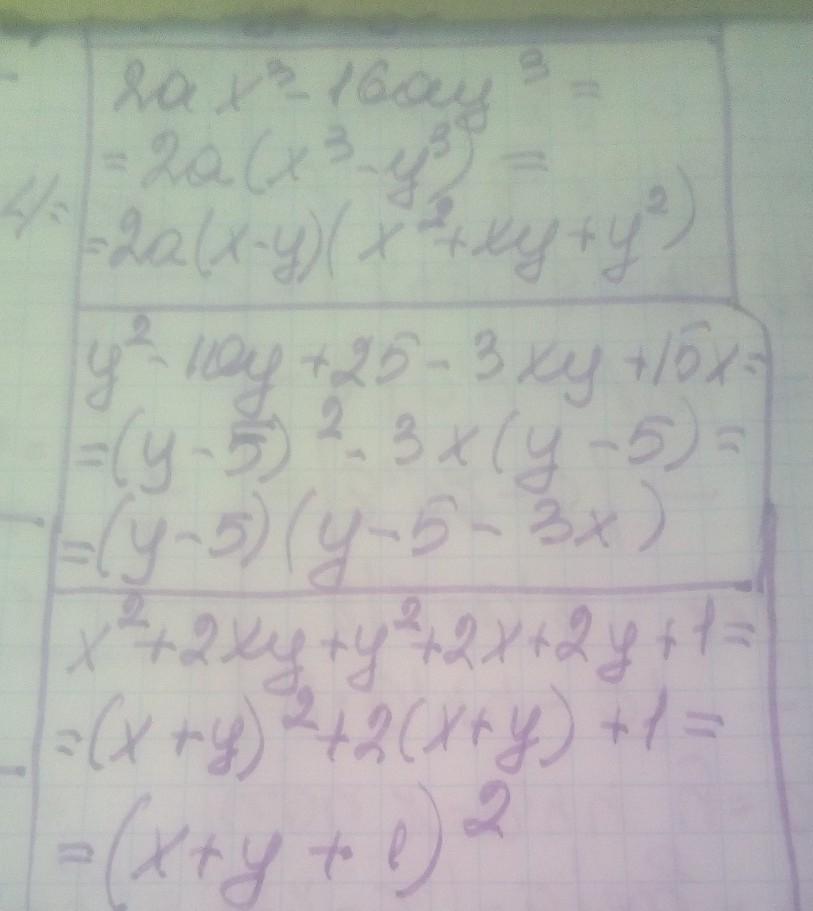 2ax³ - 16ay³ =
= 2a(x³ - y³) =
= 2a(x - y)(x² + xy + y²)
y² - 10y + 25 - 3xy + 15x =
= (y - 5)² - 3x(y - 5) =
= (y - 5)(y - 5 - 3x)
x² + 2xy + y² + 2x + 2y + 1 =
= (x + y)² + 2(x + y) + 1 =
= (x + y + 1)²